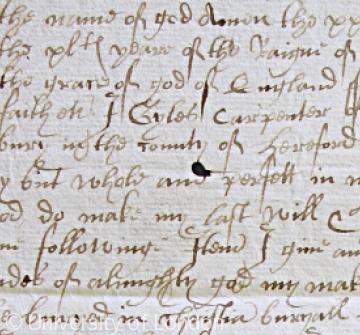 the name of god Amen the
the yeare of the Raigne of
the grace of god of England
faith etc I Gyles Carpenter
bury in the county of hereford
but whole and perfett in
do make my last will
following Item I give an
of almighty god my
buryed in buryall
© University of London